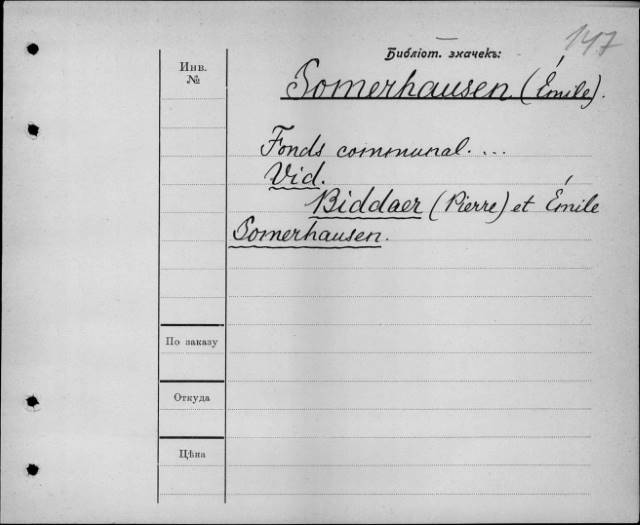 147
Библіот. значекъ:
Инв.
№
Somerhausen (Émile).
Fonds communal....
Vid.
Biddaer (Pierre) et Émile
Somerhausen.
По заказу
Откуда
Цѣна